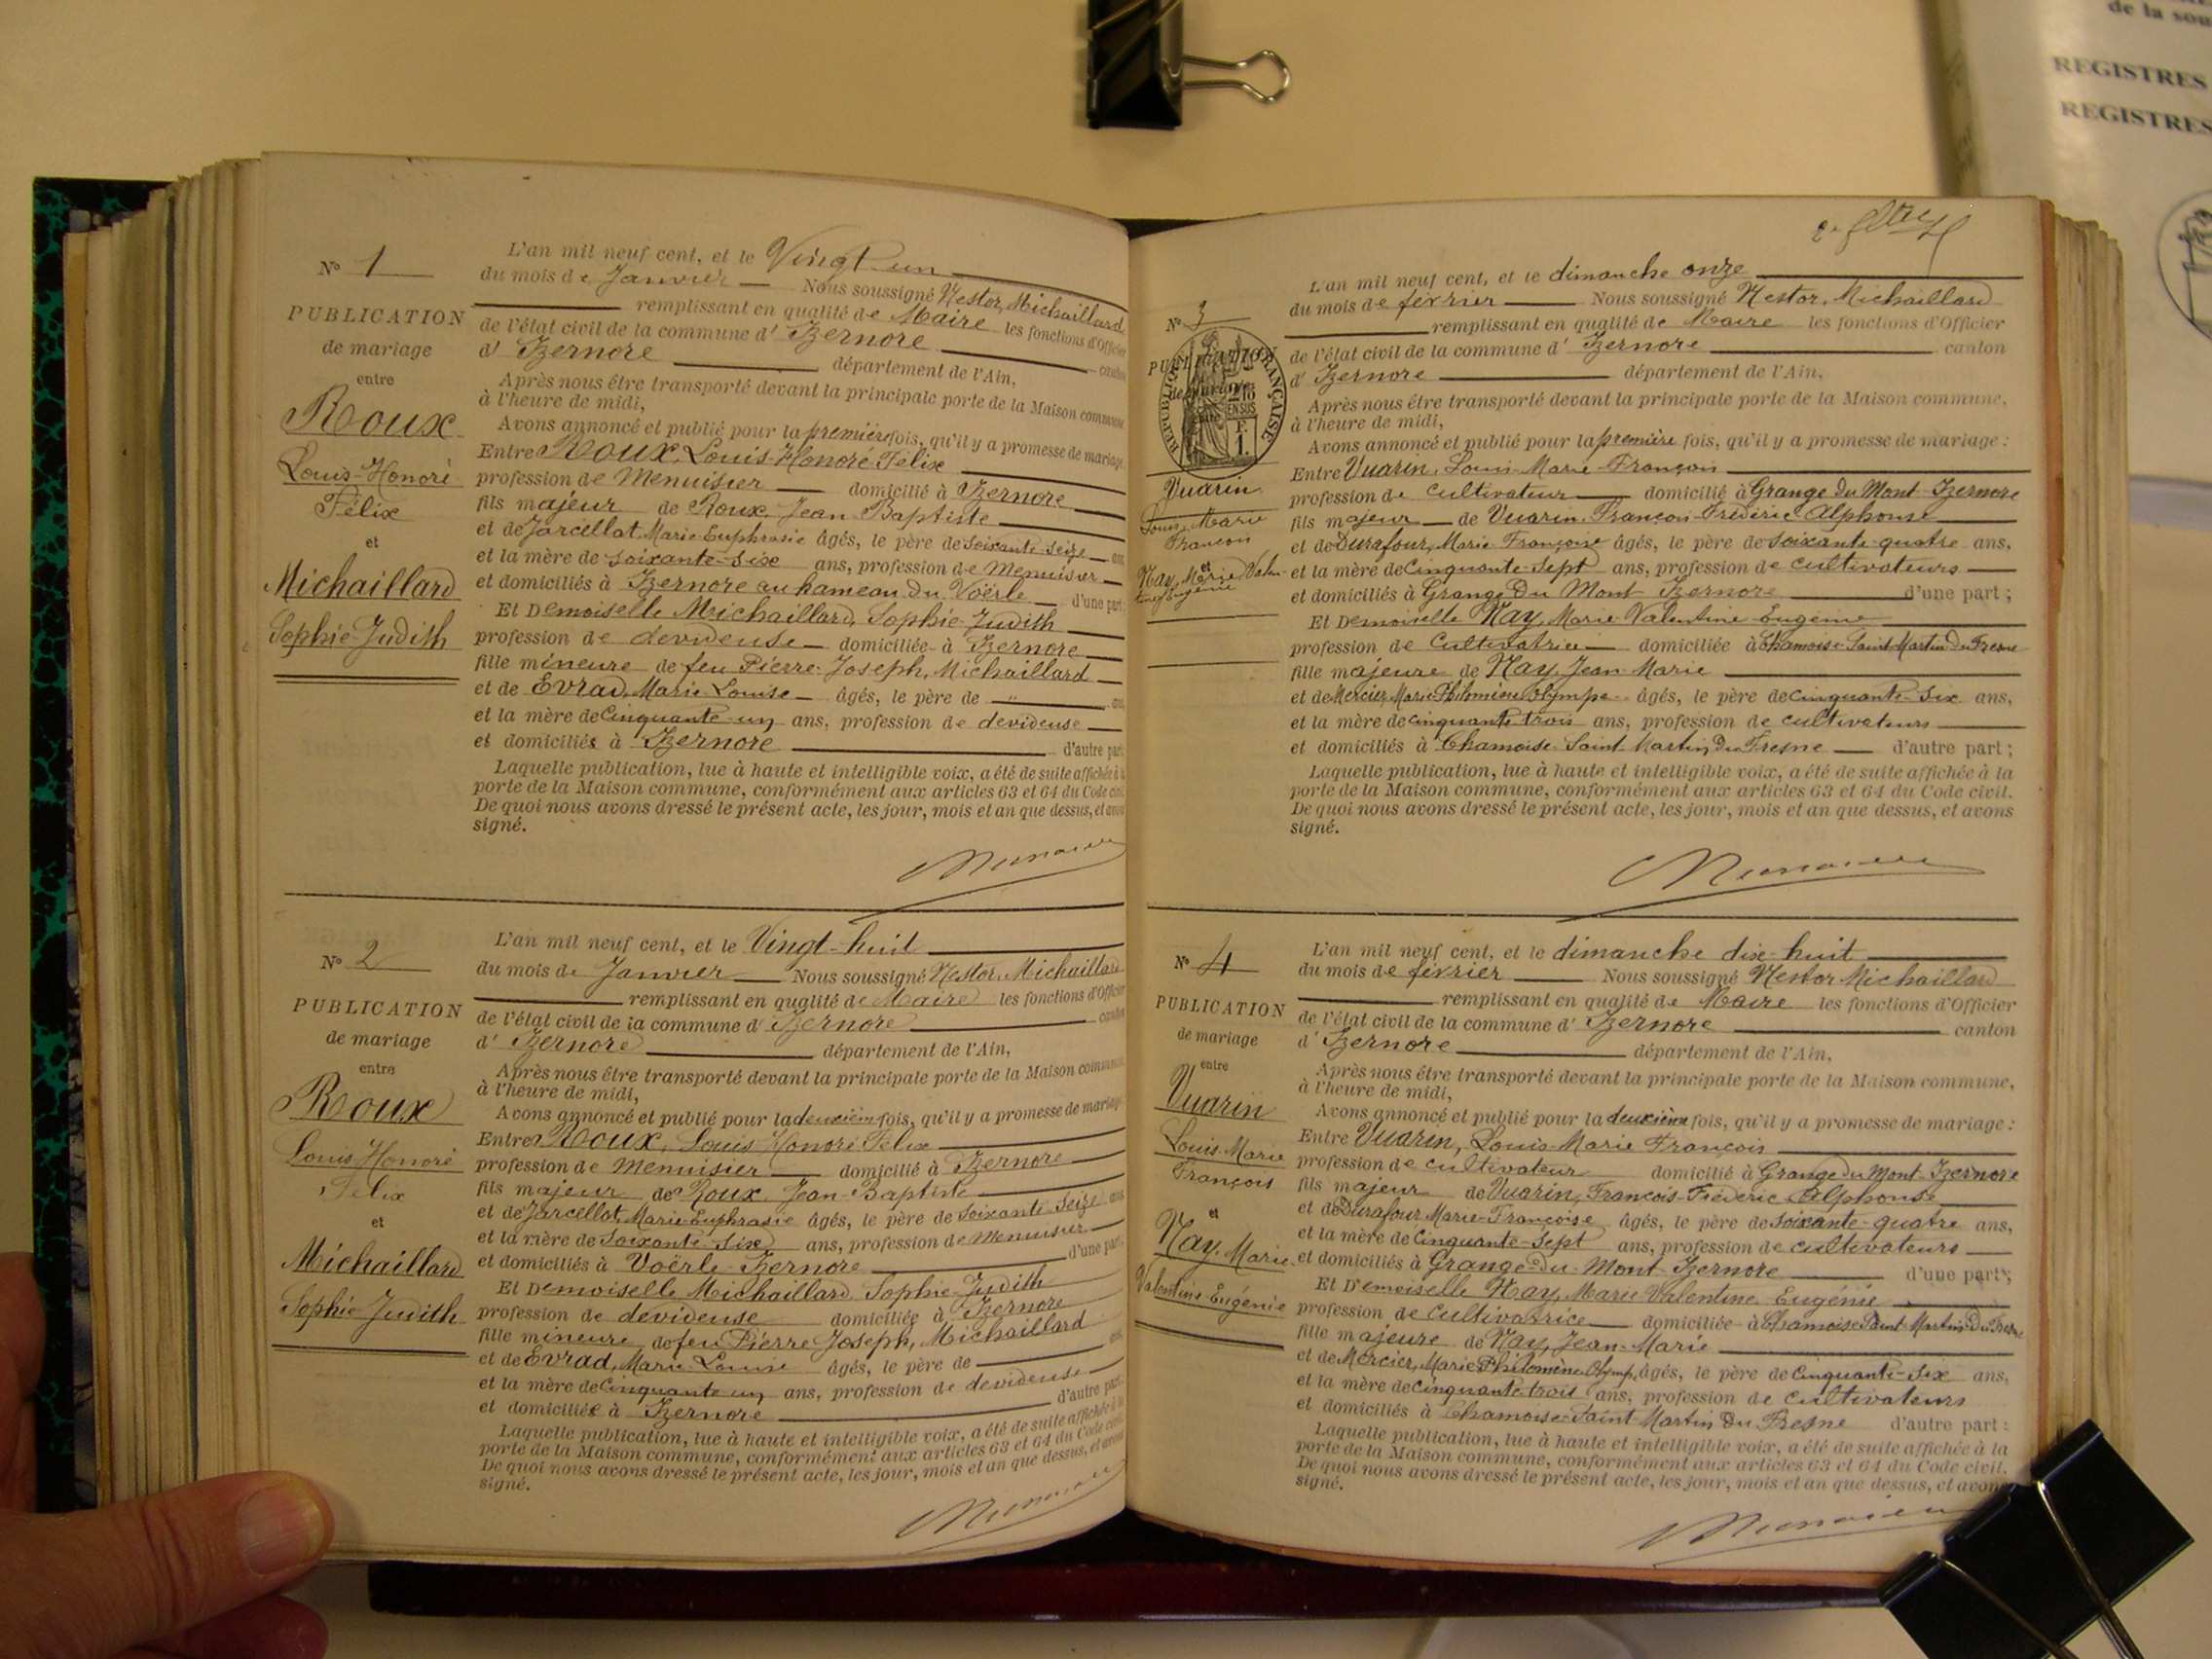 de la sou
REGISTRES
REGISTRES
N° 1
PUBLICATION
de mariage
entre
Roux
Louis-Honoré
Félix
et
Michaillard
Sophie-Judith
L'an mil neuf cent, et le Vingt-un
du mois de Janvier Nous soussigné Nestor, Michaillard
remplissant en qualité de Maire les fonctions d'Officier
de l'état civil de la commune d' Izernore canton
d' Izernore département de l'Ain,
Après nous être transporté devant la principale porte de la Maison commune
à l'heure de midi,
Avons annoncé et publié pour la première fois, qu'il y a promesse de mariage
Entre Roux, Louis-Honoré Félix
profession de Menuisier domicilié à Izernore
fils majeur de Roux, Jean-Baptiste
et de Jarcellot, Marie-Euphrasie âgés, le père de Soixante-seize ans
et la mère de soixante-six ans, profession de Menuisier
et domiciliés à Izernore au hameau du Voërle d'une part
Et Demoiselle Michaillard, Sophie-Judith
profession de devideuse domiciliée à Izernore
fille mineure de feu Pierre-Joseph, Michaillard
et de Evrad, Marie Louise âgés, le père de " ans
et la mère de Cinquante-un ans, profession de devideuse
et domiciliés à Izernore d'autre part
Laquelle publication, lue à haute et intelligible voix, a été de suite affichée à la
porte de la Maison commune, conformément aux articles 63 et 64 du Code civil.
De quoi nous avons dressé le présent acte, les jour, mois et an que dessus, et avons
signé.
N° 2
PUBLICATION
de mariage
entre
Roux
Louis Honoré
Félix
et
Michaillard
Sophie Judith
L'an mil neuf cent, et le Vingt-huit
du mois de Janvier Nous soussigné Nestor, Michaillard
remplissant en qualité de Maire les fonctions d'Officier
de l'état civil de la commune d' Izernore canton
d' Izernore département de l'Ain,
Après nous être transporté devant la principale porte de la Maison commune
à l'heure de midi,
Avons annoncé et publié pour la deuxième fois, qu'il y a promesse de mariage
Entre Roux, Louis Honoré Félix
profession de Menuisier domicilié à Izernore
fils majeur de Roux, Jean-Baptiste
et de Jarcellot, Marie-Euphrasie âgés, le père de Soixante-seize ans
et la mère de Soixante-six ans, profession de Menuisier
et domiciliés à Voërle-Izernore d'une part
Et Demoiselle Michaillard, Sophie-Judith
profession de devideuse domiciliée à Izernore
fille mineure de feu Pierre-Joseph, Michaillard
et de Evrad, Marie-Louise âgés, le père de ans
et la mère de Cinquante un ans, profession de devideuse
et domiciliés à Izernore d'autre part
Laquelle publication, lue à haute et intelligible voix, a été de suite affichée à la
porte de la Maison commune, conformément aux articles 63 et 64 du Code civil.
De quoi nous avons dressé le présent acte, les jour, mois et an que dessus, et avons
signé.
N° 3
PUBLICATION
de mariage
entre
RÉPUBLIQUE FRANÇAISE
2/10
EN SUS
F.
1.
Vuarin
Louis-Marie
François
et
Nay, Marie Valen-
tine Eugénie
L'an mil neuf cent, et le dimanche onze
du mois de février Nous soussigné Nestor, Michaillard
remplissant en qualité de Maire les fonctions d'Officier
de l'état civil de la commune d' Izernore canton
d' Izernore département de l'Ain,
Après nous être transporté devant la principale porte de la Maison commune,
à l'heure de midi,
Avons annoncé et publié pour la première fois, qu'il y a promesse de mariage :
Entre Vuarin, Louis-Marie-François
profession de cultivateur domicilié à Grange du Mont-Izernore
fils majeur de Vuarin, François-Fréderic Alphonse
et de Durafour, Marie-Françoise âgés, le père de soixante-quatre ans,
et la mère de Cinquante-sept ans, profession de cultivateurs
et domiciliés à Grange Du Mont-Izernore d'une part ;
Et Demoiselle Nay, Marie-Valentine-Eugénie
profession de Cultivatrice domiciliée à Chamoise-Saint-Martin Du Fresne
fille majeure de Nay, Jean-Marie
et de Mercier, Marie Philomène Olympe âgés, le père de cinquante-six ans,
et la mère de cinquante trois ans, profession de cultivateurs
et domiciliés à Chamoise-Saint-Martin Du Fresne d'autre part ;
Laquelle publication, lue à haute et intelligible voix, a été de suite affichée à la
porte de la Maison commune, conformément aux articles 63 et 64 du Code civil.
De quoi nous avons dressé le présent acte, les jour, mois et an que dessus, et avons
signé.
N° 4
PUBLICATION
de mariage
entre
Vuarin
Louis-Marie
François
et
Nay, Marie
Valentine-Eugénie
L'an mil neuf cent, et le dimanche dix-huit
du mois de février Nous soussigné Nestor Michaillard
remplissant en qualité de Maire les fonctions d'Officier
de l'état civil de la commune d' Izernore canton
d' Izernore département de l'Ain,
Après nous être transporté devant la principale porte de la Maison commune,
à l'heure de midi,
Avons annoncé et publié pour la deuxième fois, qu'il y a promesse de mariage :
Entre Vuarin, Louis-Marie François
profession de cultivateur domicilié à Grange du Mont-Izernore
fils majeur de Vuarin, François-Fréderic Alphonse
et de Durafour Marie-Françoise âgés, le père de soixante-quatre ans,
et la mère de Cinquante-sept ans, profession de cultivateurs
et domiciliés à Grange-du-Mont-Izernore d'une part ;
Et Demoiselle Nay, Marie Valentine Eugénie
profession de Cultivatrice domiciliée à Chamoise Saint-Martin Du Fresne
fille majeure de Nay, Jean-Marie
et de Mercier, Marie Philomène Olymp. âgés, le père de Cinquante-six ans,
et la mère de cinquante trois ans, profession de cultivateurs
et domiciliés à Chamoise-Saint Martin Du Fresne d'autre part :
Laquelle publication, lue à haute et intelligible voix, a été de suite affichée à la
porte de la Maison commune, conformément aux articles 63 et 64 du Code civil.
De quoi nous avons dressé le présent acte, les jour, mois et an que dessus, et avons
signé.